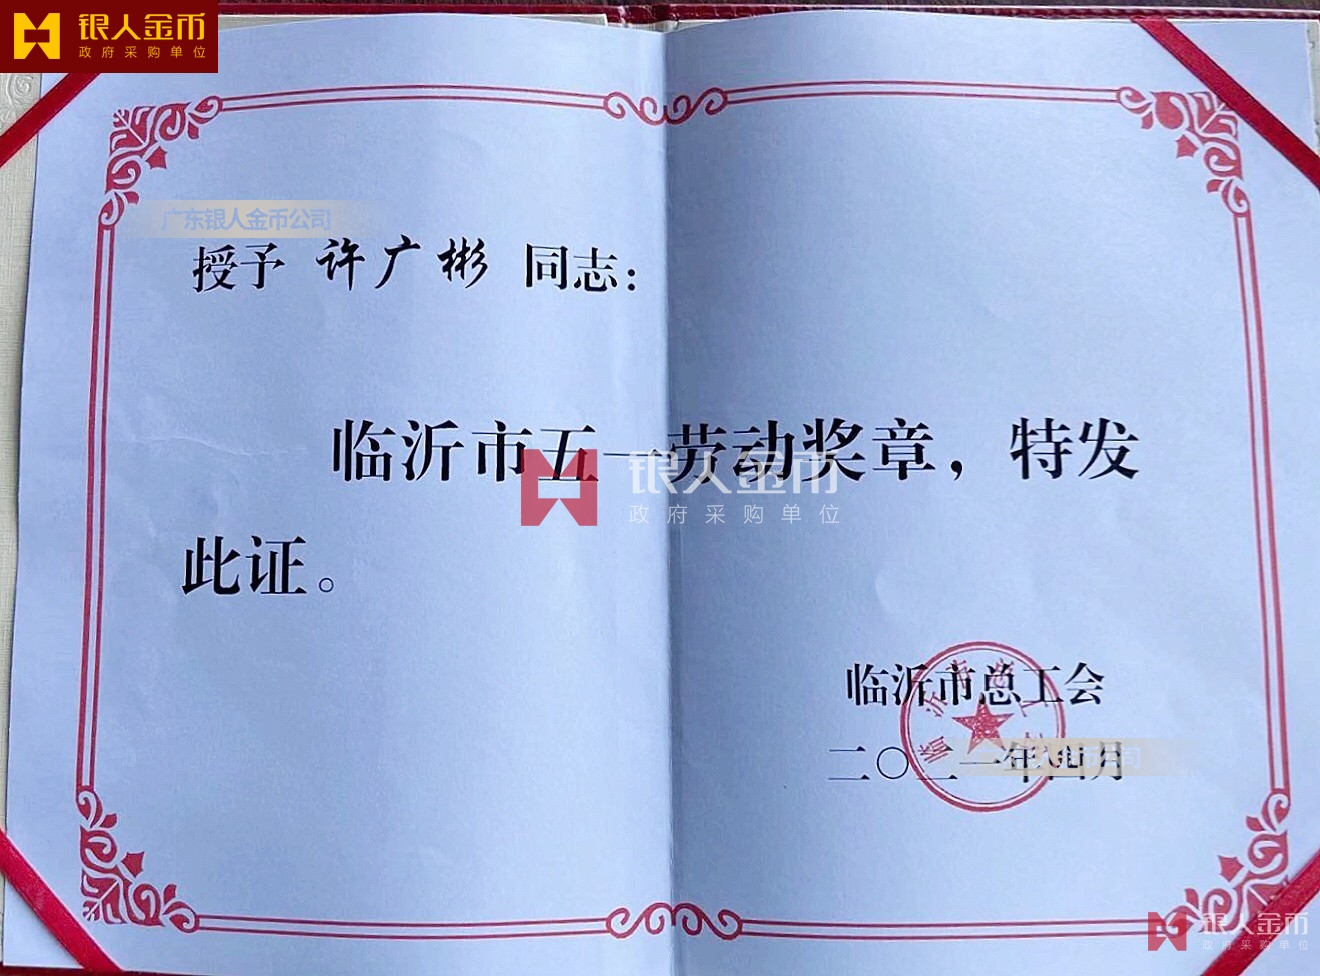 银人金币
政府采购单位
广东银人金币公司
授予 许广彬 同志：
临沂市五一劳动奖章，特发
此证。
银人金币
政府采购单位
临沂市总工会
二〇二一年四月
银人金币
政府采购单位